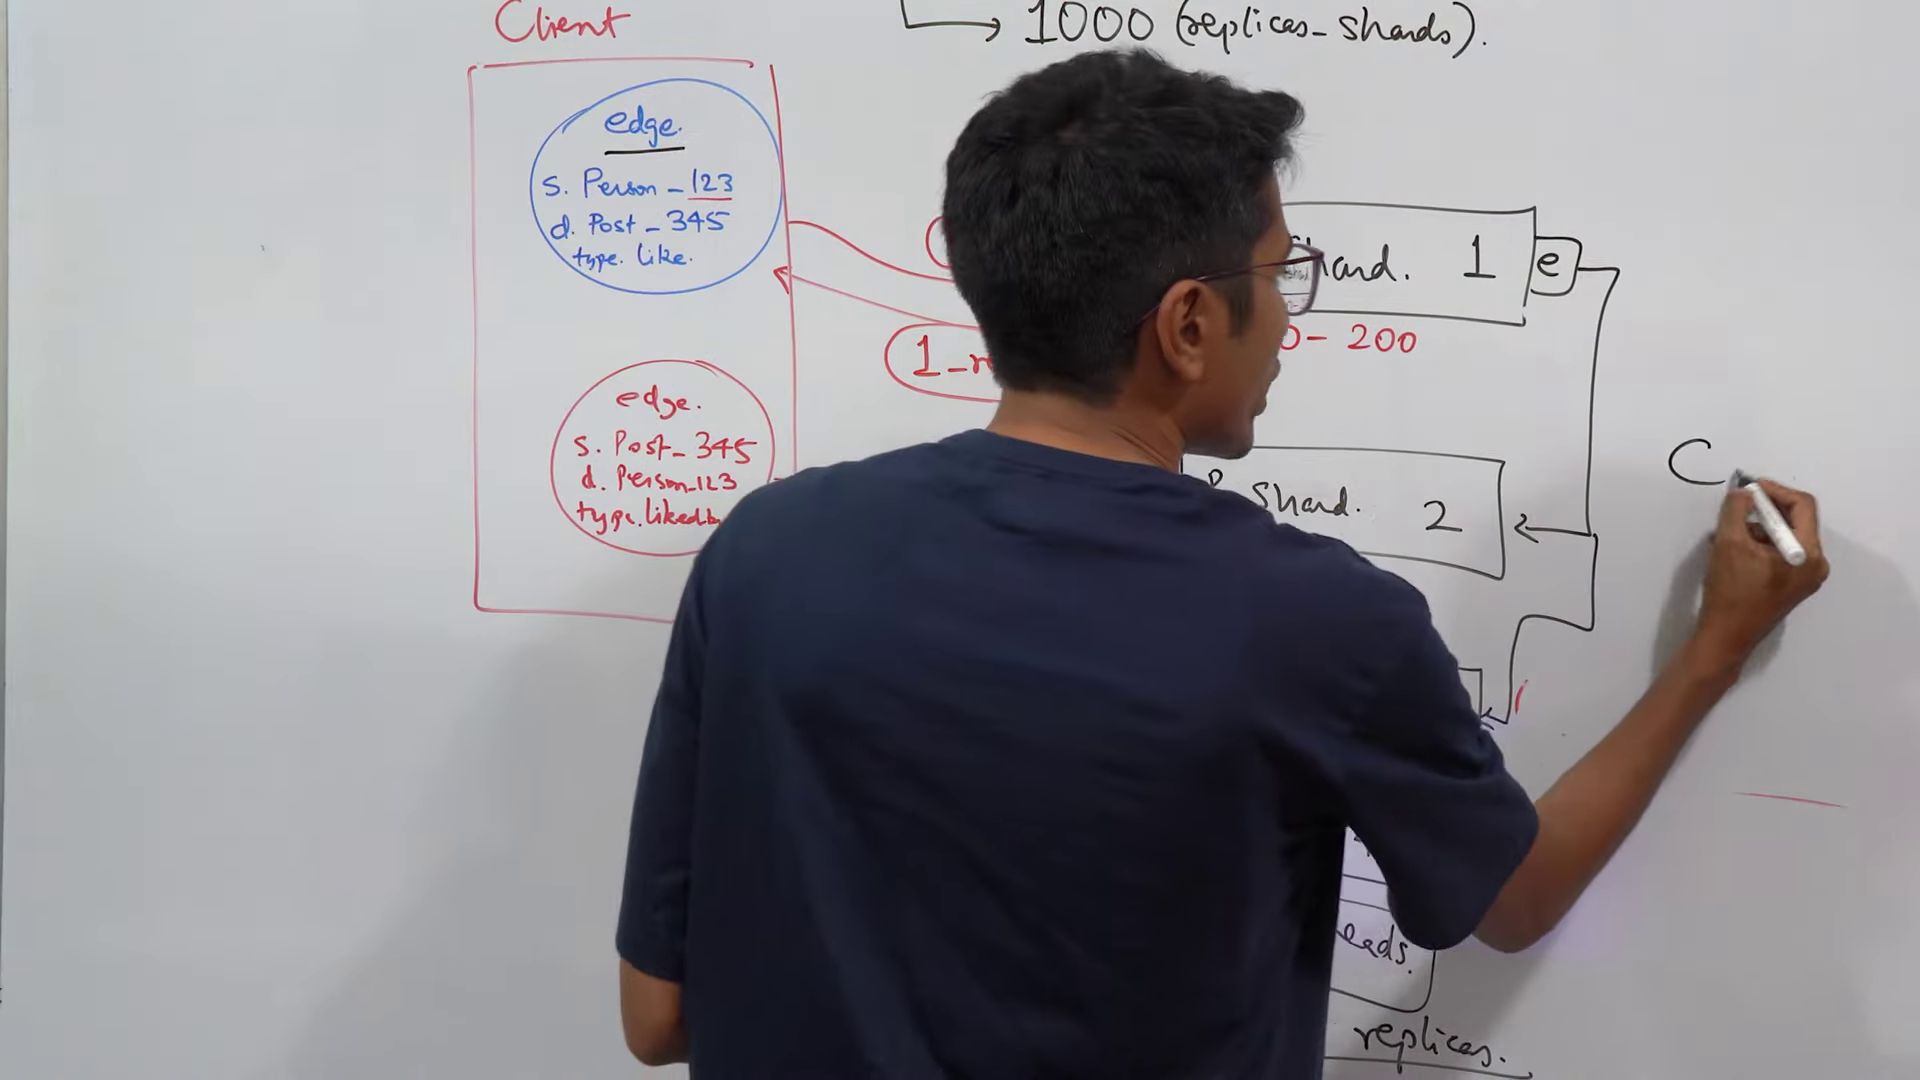 Client
1000 (replicas_shards).
edge.
s. Person_123
d. Post_345
type. like.
edge.
s. Post_345
d. Person_123
1
e
200
Shard. 2
C
replicas.